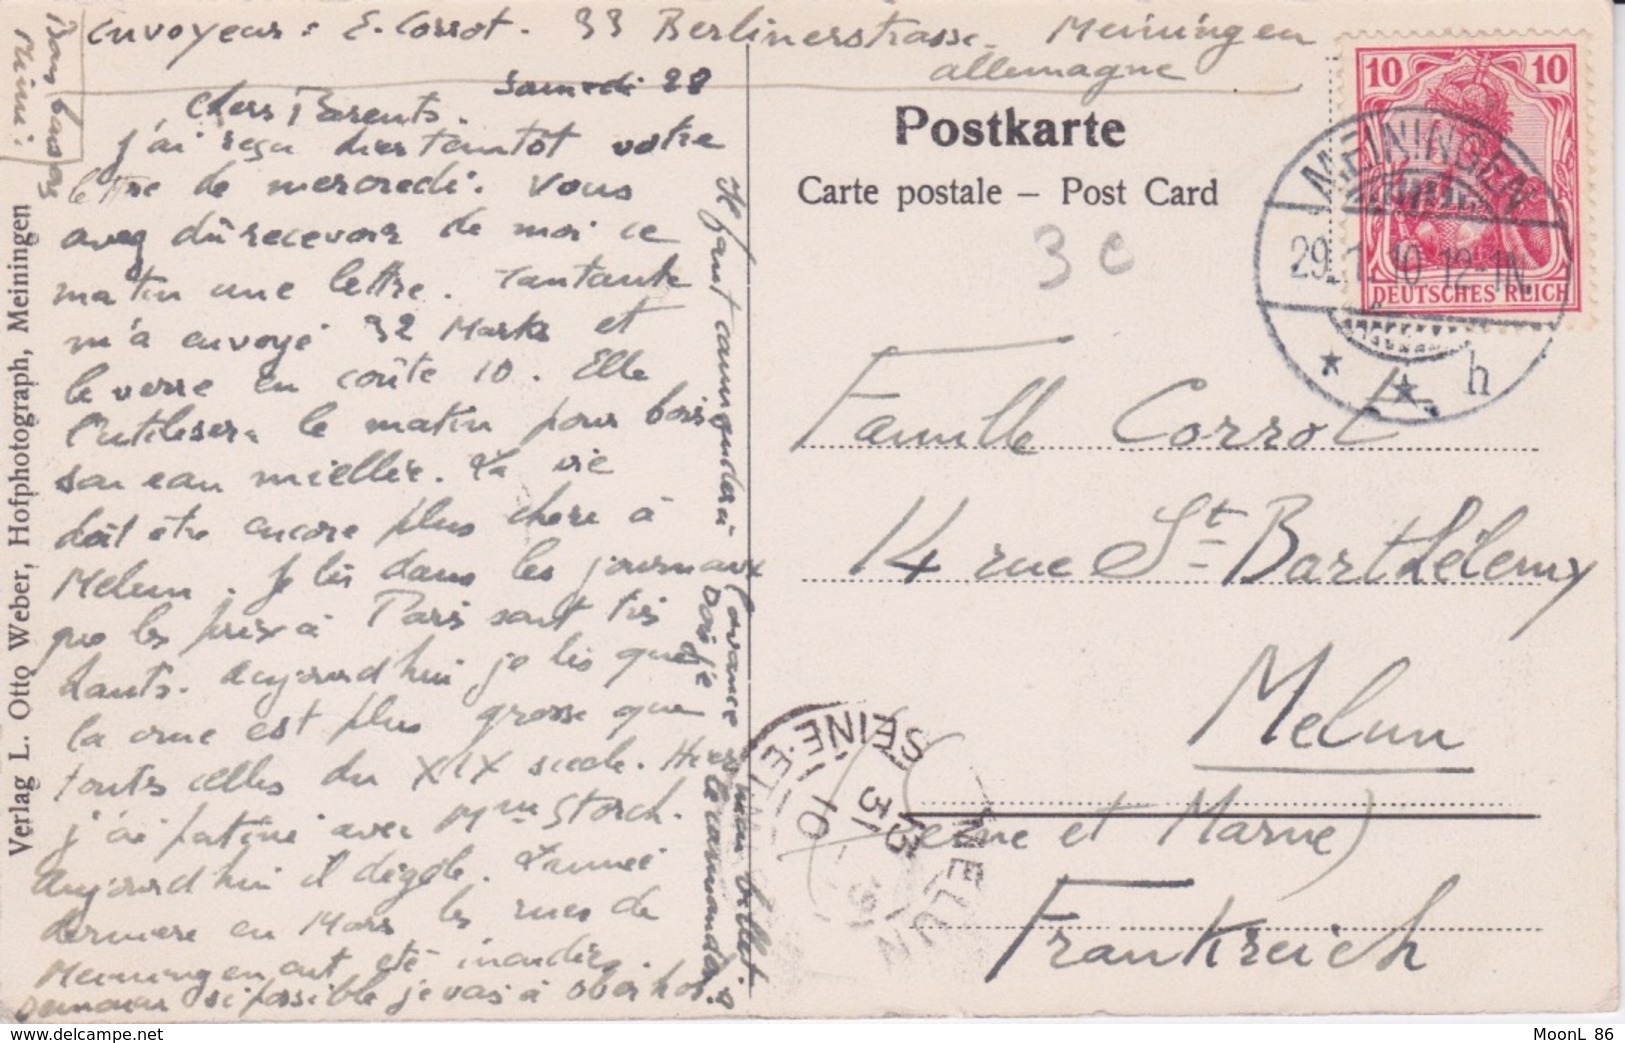 envoyeur : E. Corrot. 33 Berlinerstrasse. Meiningen
allemagne
Samedi 28
Chers Parents.
j'ai reçu hier tantôt votre
lettre de mercredi. Vous
avez dû recevoir de moi ce
matin une lettre. Tantante
m'a envoyé 32 Marks et
le verre en coûte 10. Elle
l'utilisera le matin pour boire
son eau miellée. La vie
doit être encore plus chère à
Melun. Je lis dans les journaux
que les prix à Paris sont très
hauts. Aujourd'hui je lis que
la crue est plus grosse que
toutes celles du XIX siècle. Hier
j'ai patiné avec Mme Storch.
Aujourd'hui il dégèle. L'année
dernière en Mars les rues de
Meiningen ont été inondées.
Demain si possible je vais à Oberhof.
Il faut commander ici
l'avance mon billet.
Dois-je le commander ?
Bons baisers
Mimi.
Verlag L. Otto Weber, Hofphotograph, Meiningen
Postkarte
Carte postale – Post Card
3 c
10 10
DEUTSCHES REICH
MEININGEN
29. 1. 10. 12-1N.
h
Famille Corrot
14 rue St-Barthélemy
Melun
(Seine et Marne)
Frankreich
MELUN
SEINE-ET-M
31
10
MoonL 86
delcampe.net